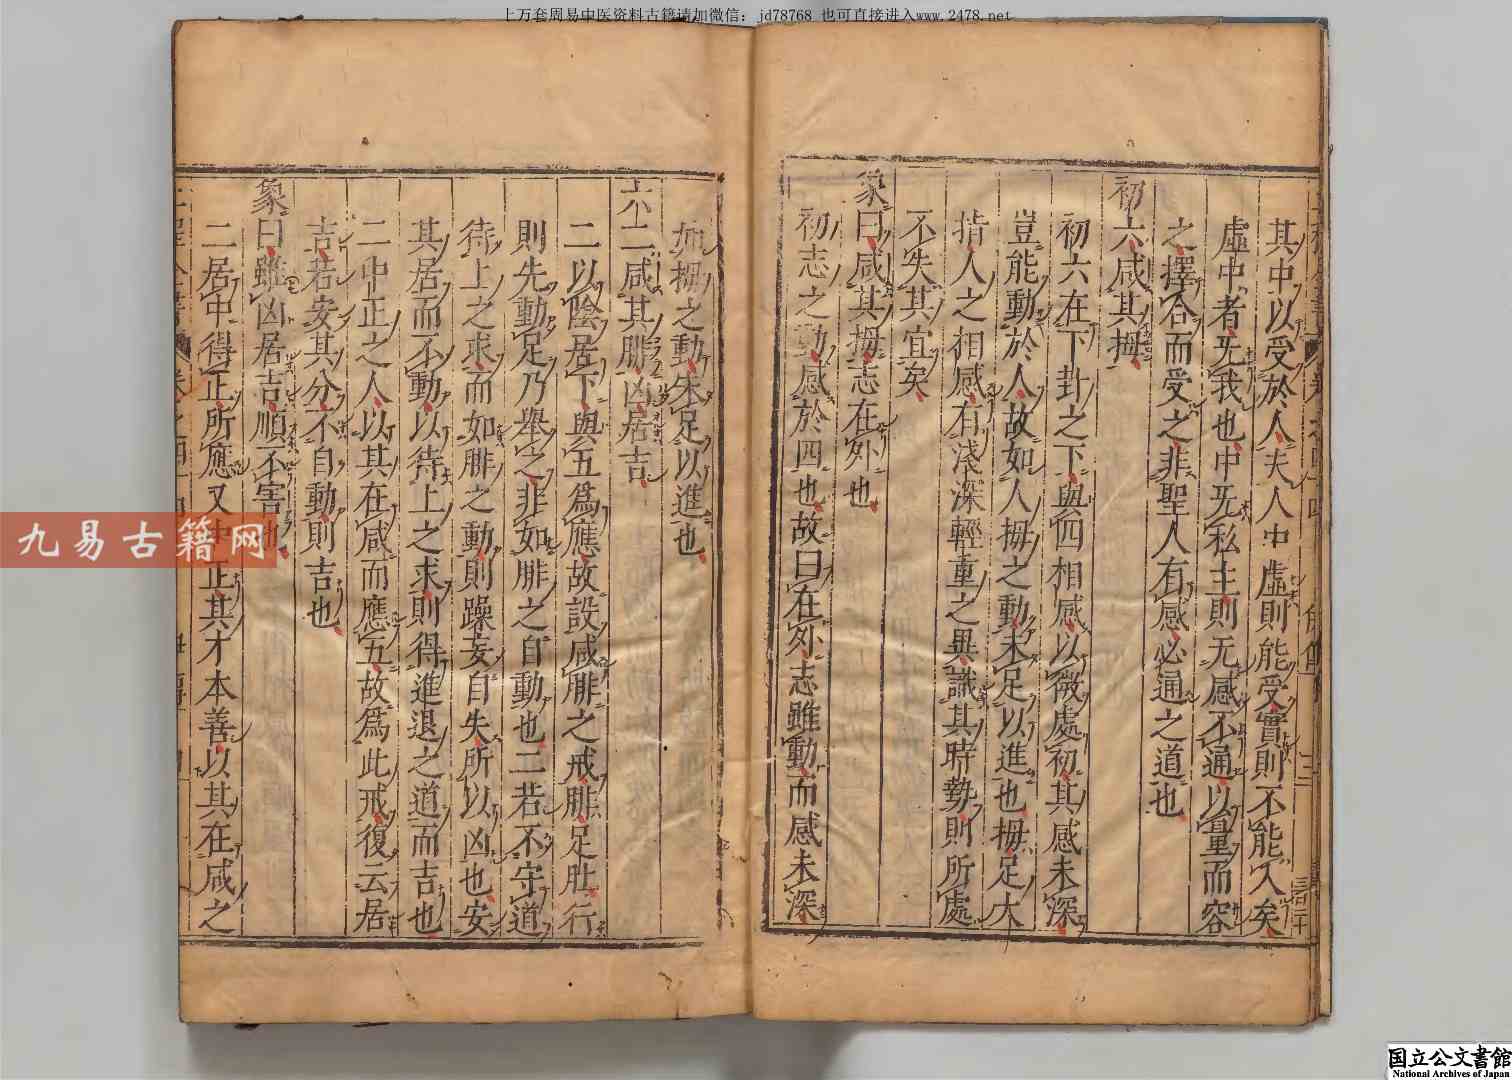 上万套周易中医资料古籍请加微信: jd78768 也可直接进入www.2478.net
其中以受於人夫人中虛則能受實則不能入矣
虛中者无我也中无私主則无感不通以量而容
之擇合而受之非聖人有感必通之道也
初六咸其拇
初六在下卦之下與四相感以微處初其感未深
豈能動於人故如人拇之動未足以進也拇足大
指人之相感有淺深輕重之異識其時勢則所處
不失其宜矣
象曰咸其拇志在外也
初志之動感於四也故曰在外志雖動而感未深
如拇之動未足以進也
六二咸其腓凶居吉
二以陰居下與五爲應故設咸腓之戒腓足肚行
則先動足乃舉之非如腓之自動也二若不守道
待上之求而如腓之動則躁妄自失所以凶也安
其居而不動以待上之求則得進退之道而吉也
二中正之人以其在咸而應五故爲此戒復云居
吉若安其分不自動則吉也
象曰雖凶居吉順不害也
二居中得正所應又中正其才本善以其在咸之
九易古籍网
国立公文書館
National Archives of Japan